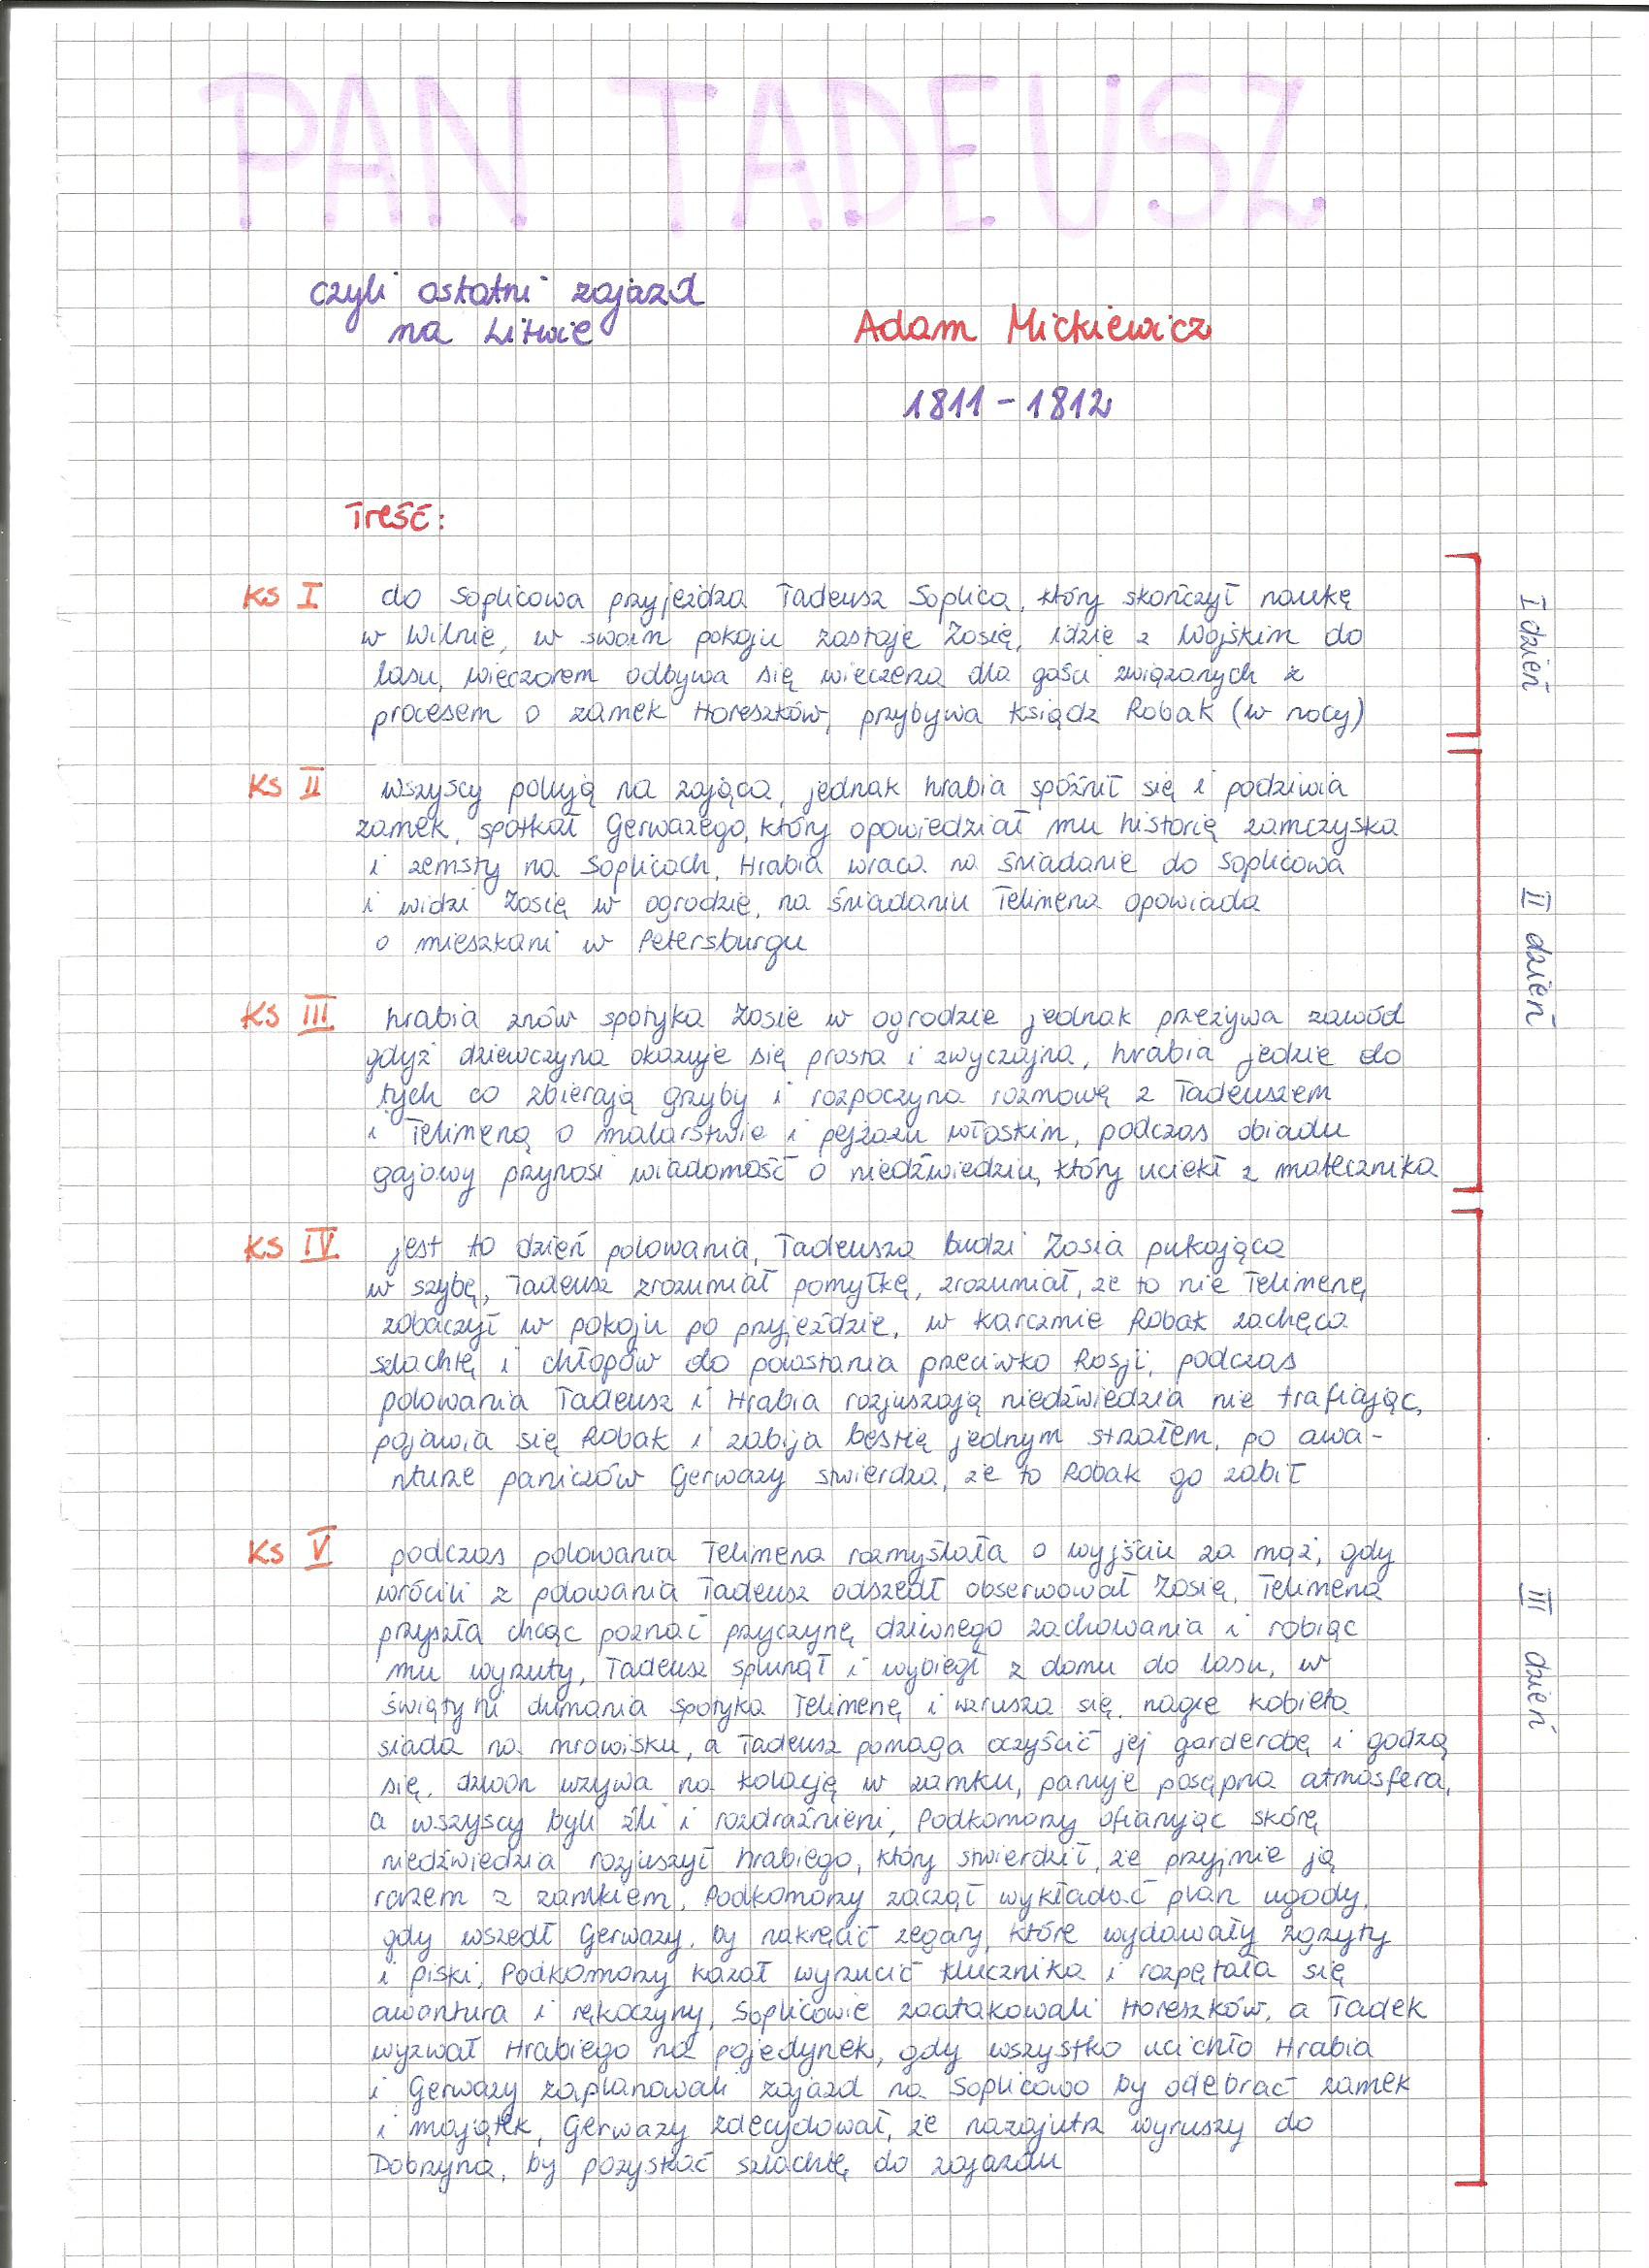 PAN TADEUSZ
czyli ostatni zajazd
na Litwie
Adam Mickiewicz
1811-1812
Treść:
I dzień
KS I do Soplicowa przyjeżdża Tadeusz Soplica, który skończył naukę
w Wilnie, w swoim pokoju zastaje Zosię, idzie z Wojskim do
lasu, wieczorem odbywa się wieczerza dla gości związanych z
procesem o zamek Horeszków, przybywa Ksiądz Robak (w nocy)
II dzień
KS II wszyscy polują na zająca, jednak hrabia spóźnił się i podziwia
zamek, spotkał Gerwazego, który opowiedział mu historię zamczyska
i zemsty na Soplicach, Hrabia wraca na śniadanie do Soplicowa
i widzi Zosię w ogrodzie, na śniadaniu Telimena opowiada
o mieszkani w Petersburgu
KS III hrabia znów spotyka Zosie w ogrodzie jednak przeżywa zawód
gdyż dziewczyna okazuje się prosta i zwyczajna, hrabia jedzie do
tych co zbierają grzyby i rozpoczyna rozmowę z Tadeuszem
i Telimeną o malarstwie i pejżażu włoskim, podczas obiadu
gajowy przynosi wiadomość o niedźwiedziu, który uciekł z matecznika
III dzień
KS IV jest to dzień polowania, Tadeusza budzi Zosia pukająca
w szybę, Tadeusz zrozumiał pomyłkę, zrozumiał, że to nie Telimenę
zobaczył w pokoju po przyjeździe, w karczmie Robak zachęca
szlachtę i chłopów do powstania przeciwko Rosji, podczas
polowania Tadeusz i Hrabia rozjuszają niedźwiedzia nie trafiając,
pojawia się Robak i zabija bestię jednym strzałem, po awa-
nturze paniczów Gerwazy stwierdza, że to Robak go zabił
KS V podczas polowania Telimena rozmyślała o wyjściu za mąż, gdy
wrócili z polowania Tadeusz odszedł obserwował Zosię, Telimena
przyszła chcąc poznać przyczynę dziwnego zachowania i robiąc
mu wyrzuty, Tadeusz splunął i wybiegł z domu do lasu, w
świątyni dumania spotyka Telimenę i wzrusza się, nagle kobieta
siada na mrowisku, a Tadeusz pomaga oczyścić jej garderobę i godzą
się. dzwon wzywa na kolację w zamku, panuje posępna atmosfera,
a wszyscy byli źli i rozdrażnieni, Podkomorzy ofiarując skórę
niedźwiedzia rozjuszył hrabiego, który stwierdził, że przyjmie ją
razem z zamkiem, Podkomorzy zaczął wykładać plan ugody,
gdy wszedł Gerwazy, by nakręcić zegary, które wydawały zgrzyty
i piski, Podkomorzy kazał wyrzucić klucznika i rozpętała się
awantura i rękoczyny, Soplicowie zaatakowali Horeszków, a Tadek
wyzwał Hrabiego na pojedynek, gdy wszystko ucichło Hrabia
i Gerwazy zaplanowali zajazd na Soplicowo by odebrać zamek
i majątek, Gerwazy zdecydował, że nazajutrz wyruszy do
Dobrzyna, by pozyskać szlachtę do zajazdu